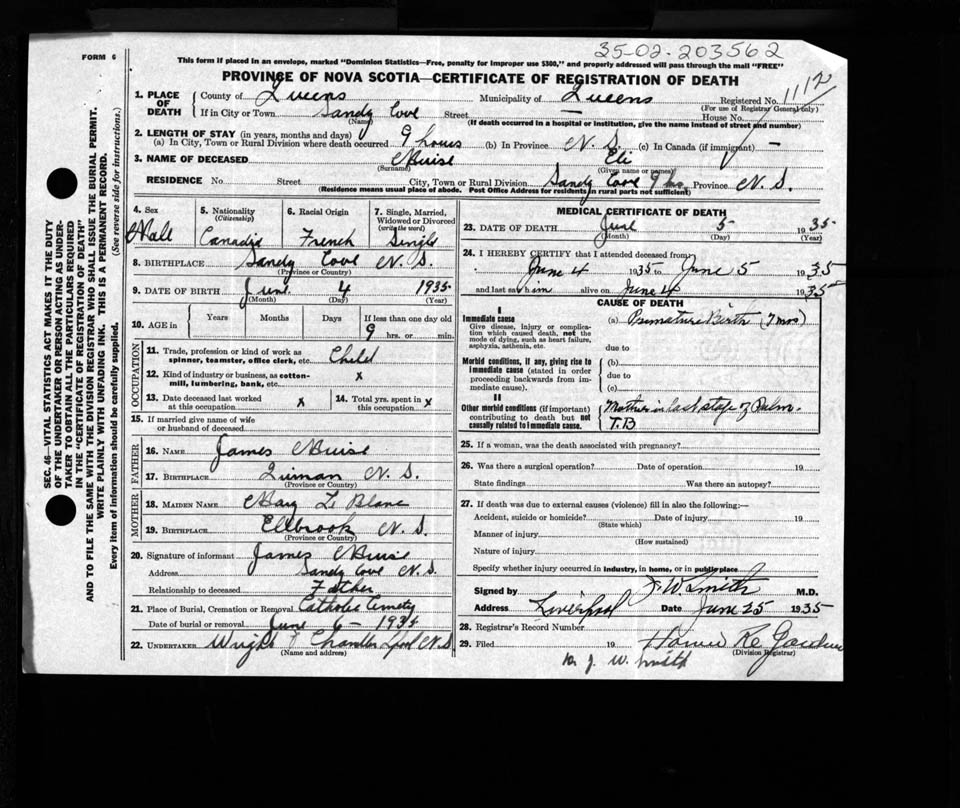 35-02-203562
FORM 6
This form if placed in an envelope, marked "Dominion Statistics—Free, penalty for improper use $300," and properly addressed will pass through the mail "FREE"
PROVINCE OF NOVA SCOTIA—CERTIFICATE OF REGISTRATION OF DEATH
1. PLACE OF DEATH
County of Queens Municipality of Queens Registered No. 1112
(For use of Registrar General only)
If in City or Town Sandy Cove Street — House No.
(Name) (If death occurred in a hospital or institution, give the name instead of street and number)
2. LENGTH OF STAY (in years, months and days)
(a) In City, Town or Rural Division where death occurred 9 hours (b) In Province N.S. (c) In Canada (if immigrant) —
3. NAME OF DECEASED Muise Eli
(Surname) (Given name or names)
RESIDENCE No. Street City, Town or Rural Division Sandy Cove 9 hrs Province N.S.
(Residence means usual place of abode. Post Office Address for residents in rural parts not sufficient)
SEC. 46—VITAL STATISTICS ACT MAKES IT THE DUTY
OF THE UNDERTAKER OR PERSON ACTING AS UNDER-
TAKER TO OBTAIN ALL THE PARTICULARS REQUIRED
IN THE "CERTIFICATE OF REGISTRATION OF DEATH"
AND TO FILE THE SAME WITH THE DIVISION REGISTRAR WHO SHALL ISSUE THE BURIAL PERMIT.
WRITE PLAINLY WITH UNFADING INK. THIS IS A PERMANENT RECORD.
Every item of information should be carefully supplied. (See reverse side for instructions.)
4. Sex Male
5. Nationality (Citizenship) Canadia
6. Racial Origin French
7. Single, Married, Widowed or Divorced (write the word) Single
8. BIRTHPLACE Sandy Cove N.S.
(Province or Country)
9. DATE OF BIRTH June 4 1935
(Month) (Day) (Year)
10. AGE in Years Months Days If less than one day old
9 hrs. or min.
OCCUPATION
11. Trade, profession or kind of work as spinner, teamster, office clerk, etc. Child
12. Kind of industry or business, as cotton-mill, lumbering, bank, etc. x
13. Date deceased last worked at this occupation x
14. Total yrs. spent in this occupation x
15. If married give name of wife or husband of deceased
FATHER
16. NAME James Muise
17. BIRTHPLACE N.S.
(Province or Country)
MOTHER
18. MAIDEN NAME Mary Le Blanc
19. BIRTHPLACE Ellbrook N.S.
(Province or Country)
20. Signature of informant James Muise
Address Sandy Cove N.S.
Relationship to deceased Father
21. Place of Burial, Cremation or Removal Catholic Cemetery
Date of burial or removal June 6 – 1935
22. UNDERTAKER Wright & Chandler Lpool N.S.
(Name and address)
MEDICAL CERTIFICATE OF DEATH
23. DATE OF DEATH June 5 1935
(Month) (Day) (Year)
24. I HEREBY CERTIFY that I attended deceased from
June 4 1935 to June 5 1935
and last saw him alive on June 4 1935
CAUSE OF DEATH
I
Immediate cause
Give disease, injury or complication which caused death, not the mode of dying, such as heart failure, asphyxia, asthenia, etc.
(a) Premature Birth (7 mos)
due to
Morbid conditions, if any, giving rise to immediate cause (stated in order proceeding backwards from immediate cause).
(b)
due to
(c)
II
Other morbid conditions (if important) contributing to death but not causally related to immediate cause.
Mother in last stage of Pulm. T.B
25. If a woman, was the death associated with pregnancy?
26. Was there a surgical operation? Date of operation 19
State findings Was there an autopsy?
27. If death was due to external causes (violence) fill in also the following:—
Accident, suicide or homicide? Date of injury 19
(State which)
Manner of injury
(How sustained)
Nature of injury
Specify whether injury occurred in industry, in home, or in public place
Signed by J. W. Smith M.D.
Address Liverpool Date June 25 1935
28. Registrar's Record Number
29. Filed 19
(Division Registrar)
J. W. Smith